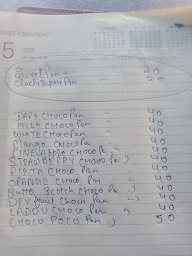 5 SATURDAY
Sweet Pan - 30
DARK CHOCO Pan - 40
MILK CHOCO Pan - 40
WHITE CHOCO Pan - 40
Mango CHOCO Pan - 40
PINEAPPLE CHOCO Pan -) 40
STRAWBERRY CHOCO Pan -) 40
PISTA CHOCO Pan -) 40
ORANGE CHOCO Pan -) 40
Butter Scotch CHOCO Pan -) 40
DRY fruit CHOCO Pan -) 40
LADDU CHOCO Pan -) 40
CHOCO POCO Pan -) 50